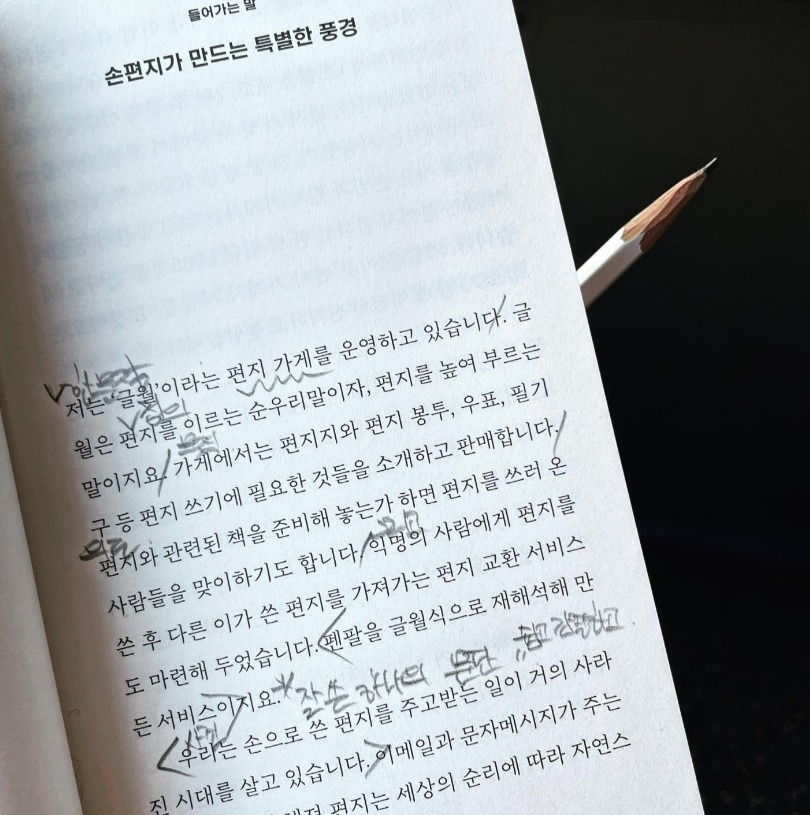 들어가는 말
손편지가 만드는 특별한 풍경
저는 '글월'이라는 편지 가게를 운영하고 있습니다. 글
월은 편지를 이르는 순우리말이자, 편지를 높여 부르는
말이지요. 가게에서는 편지지와 편지 봉투, 우표, 필기
구 등 편지 쓰기에 필요한 것들을 소개하고 판매합니다.
편지와 관련된 책을 준비해 놓는가 하면 편지를 쓰러 온
사람들을 맞이하기도 합니다. 익명의 사람에게 편지를
쓴 후 다른 이가 쓴 편지를 가져가는 편지 교환 서비스
도 마련해 두었습니다. 펜팔을 글월식으로 재해석해 만
든 서비스이지요.
잘 쓴 하나의 문단
우리는 손으로 쓴 편지를 주고받는 일이 거의 사라
진 시대를 살고 있습니다. 이메일과 문자메시지가 주는
편지는 세상의 순리에 따라 자연스